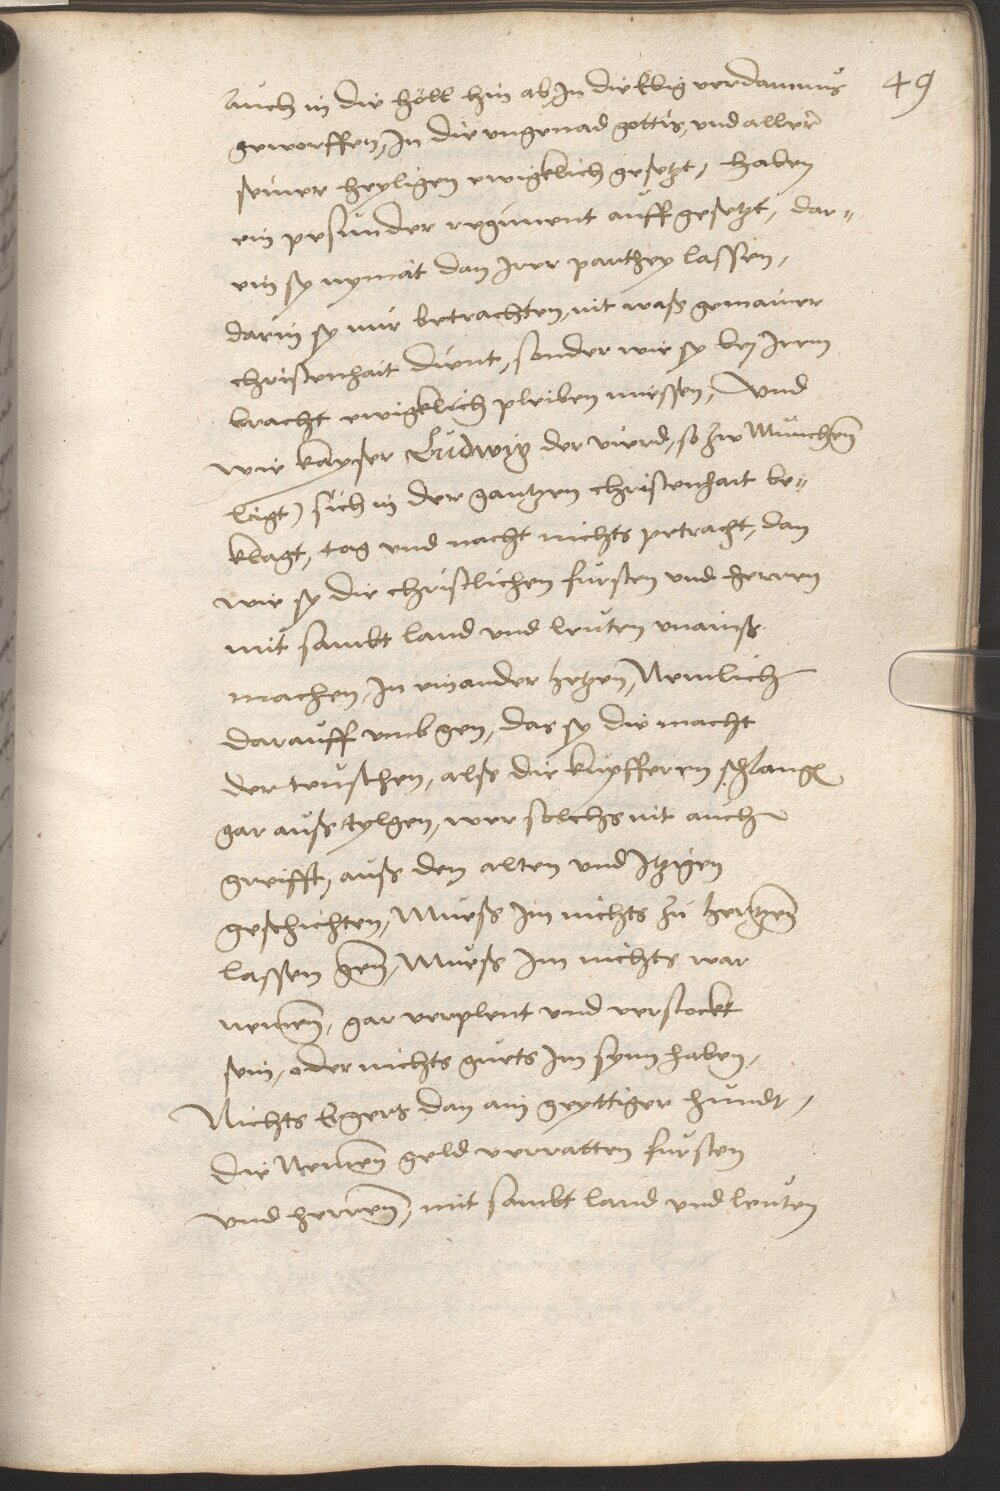 49
auch in die höll hin ab, In die Ebig verdamnus
geworffen, In die ungenad gottes, und aller
seiner heyligen ewigklich gesetzt, Haben
ein pesunder regiment auff gesetzt, dar„
ein sy nymät dan Irer parthey lassen,
darin sy nur betrachten, nit waß gemainer
christenhait dient, sonder wie sy bey Irem
bracht ewigklich pleiben muessen, Und
wie kayser Ludwig der vierd, so zw Munchen
ligt) sich in der gantzen christenhait be„
klagt, tag und nacht nichts petracht, dan
wie sy die christlichen fursten und herren
mit sambt land und leuten unainß
machen, In einander hetzen, Nemlich
darauff umb gen, das sy die macht
der teutschen, alß die kupfferen schlang
gar auß tylgen, wer solchs nit auch
greifft, auß den alten und Itzigen
geschichten, Mueß im nichts zu hertzen
lassen gen, Mueß im nichts war
nemen, gar verplent und verstockt
sein, oder nichts guets Im synn haben,
Nichts bessers dan ain geyttiger hundt,
die Nemen geld verratten fursten
und herren, mit sambt land und leuten